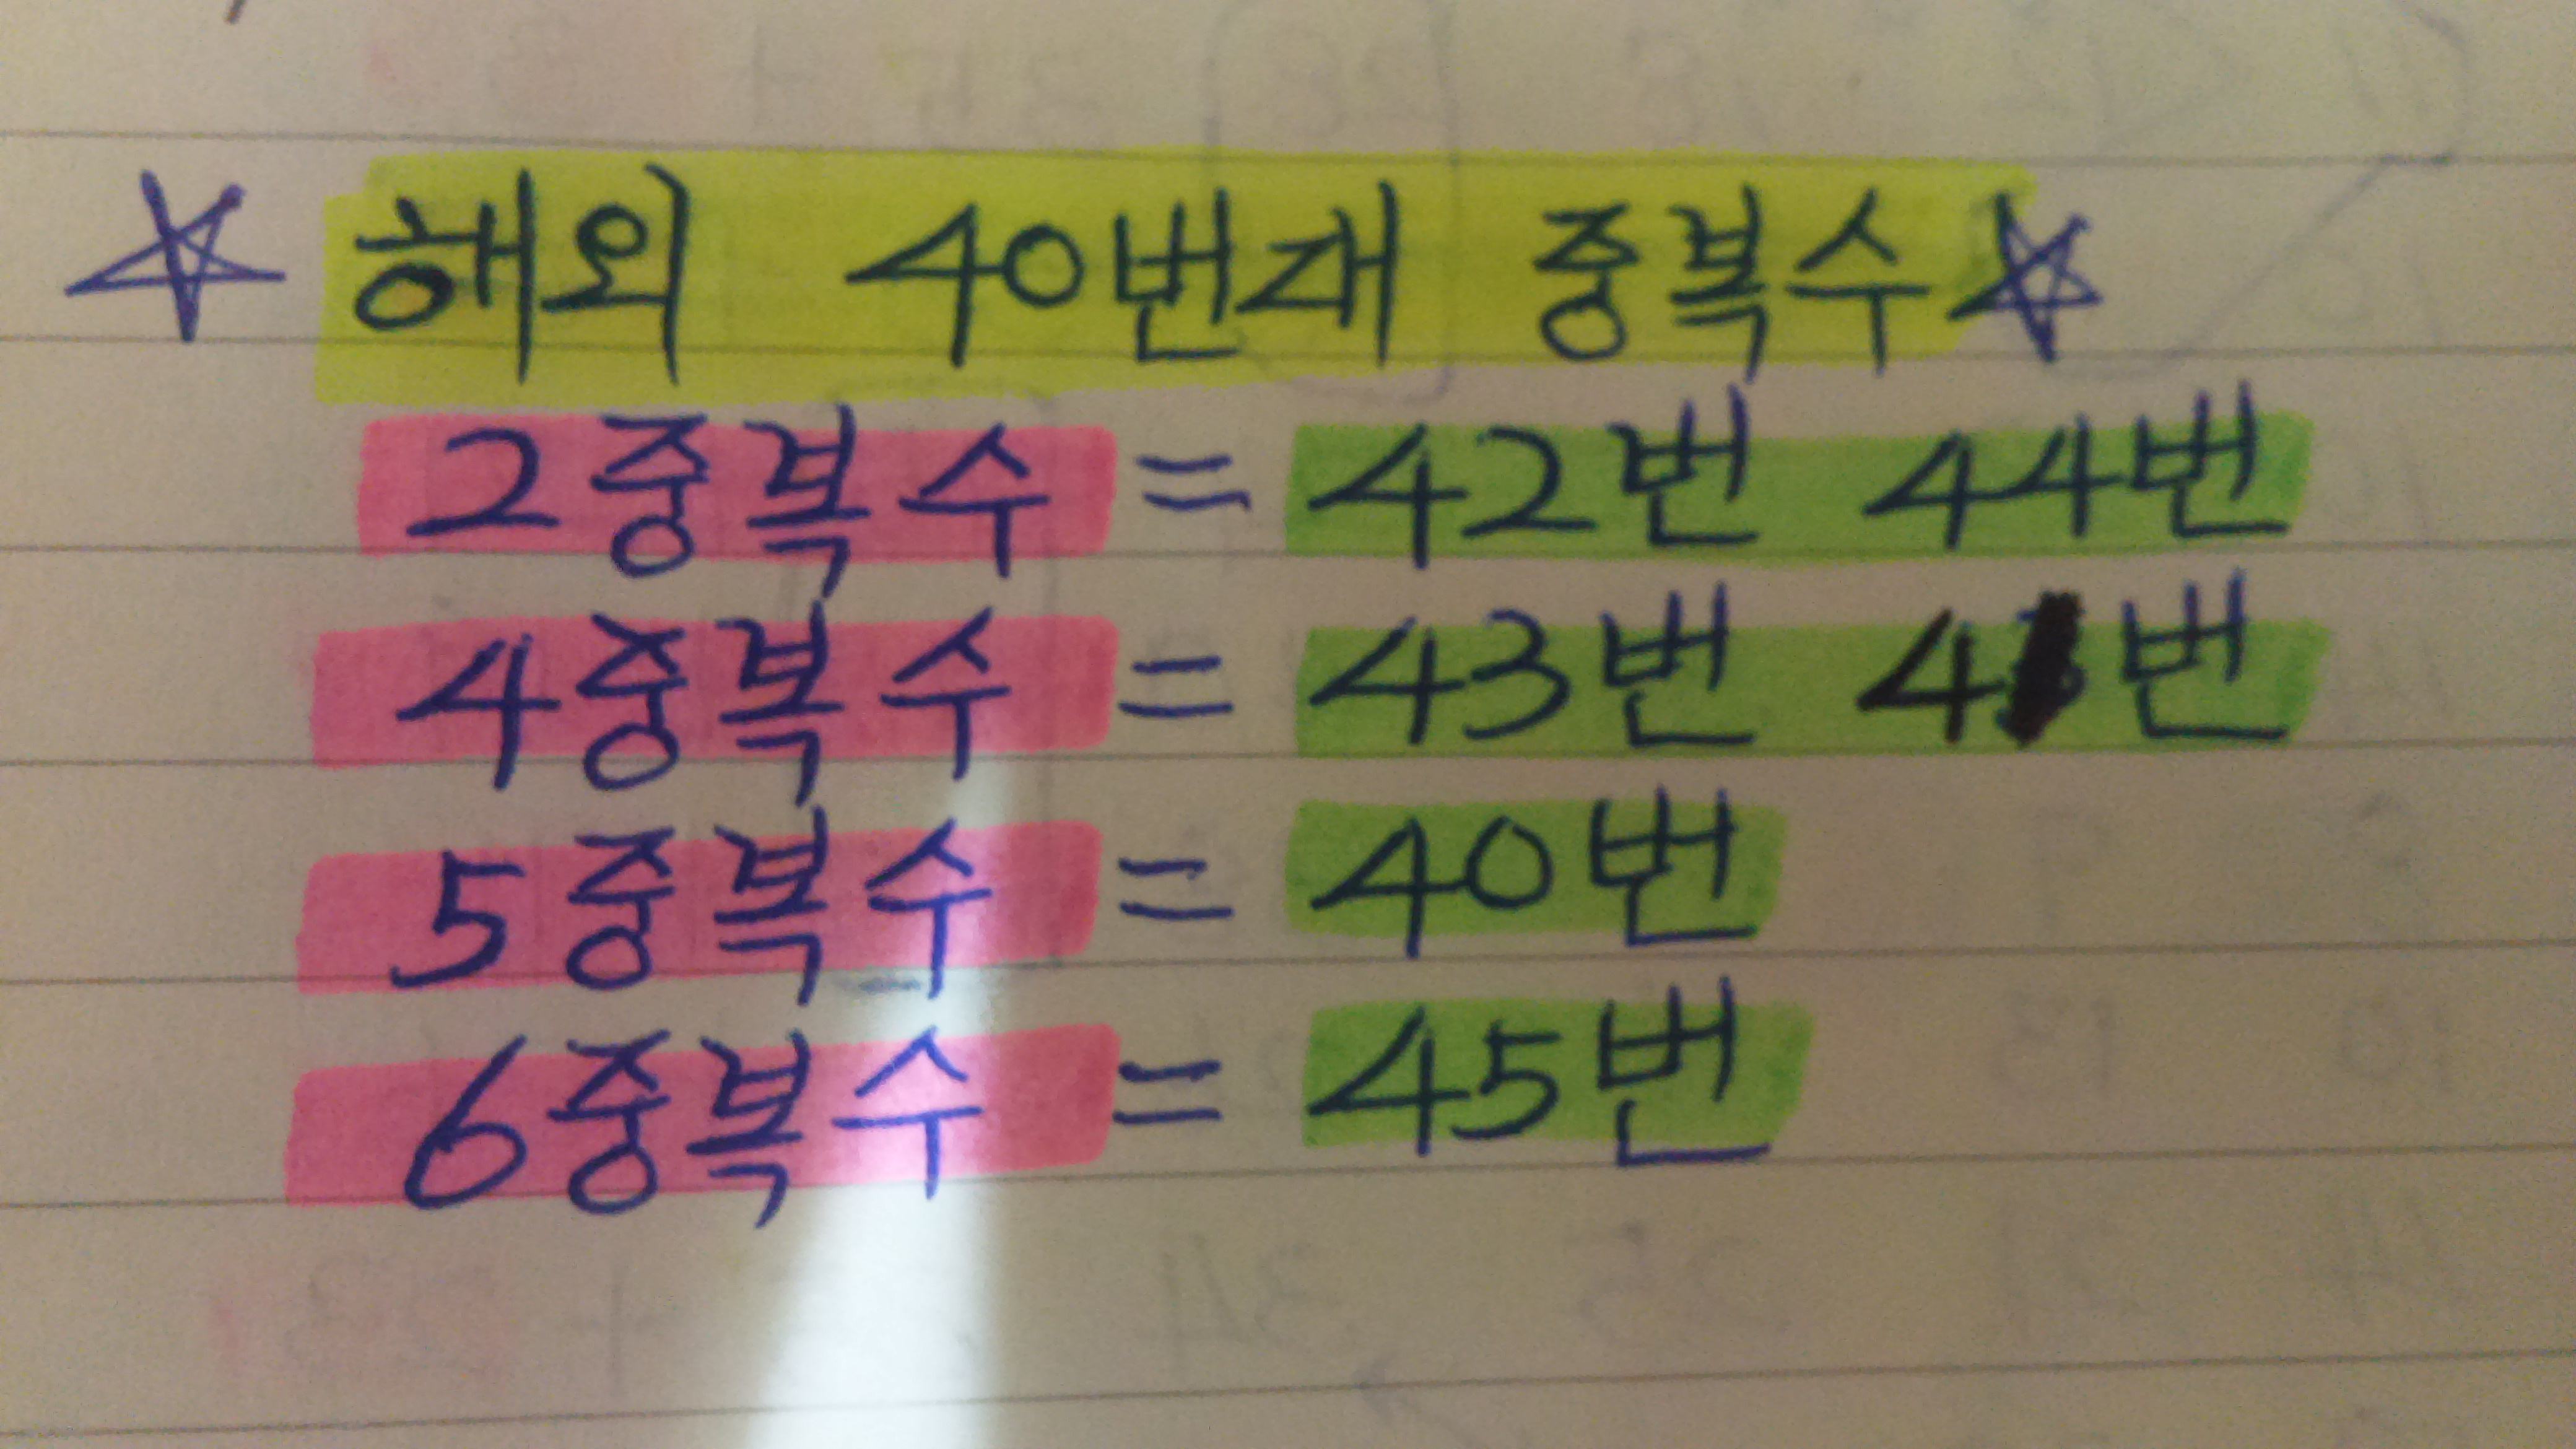 ☆ 해외 40번재 중복수 ☆
2중복수 = 42번 44번
4중복수 = 43번 41번
5중복수 = 40번
6중복수 = 45번